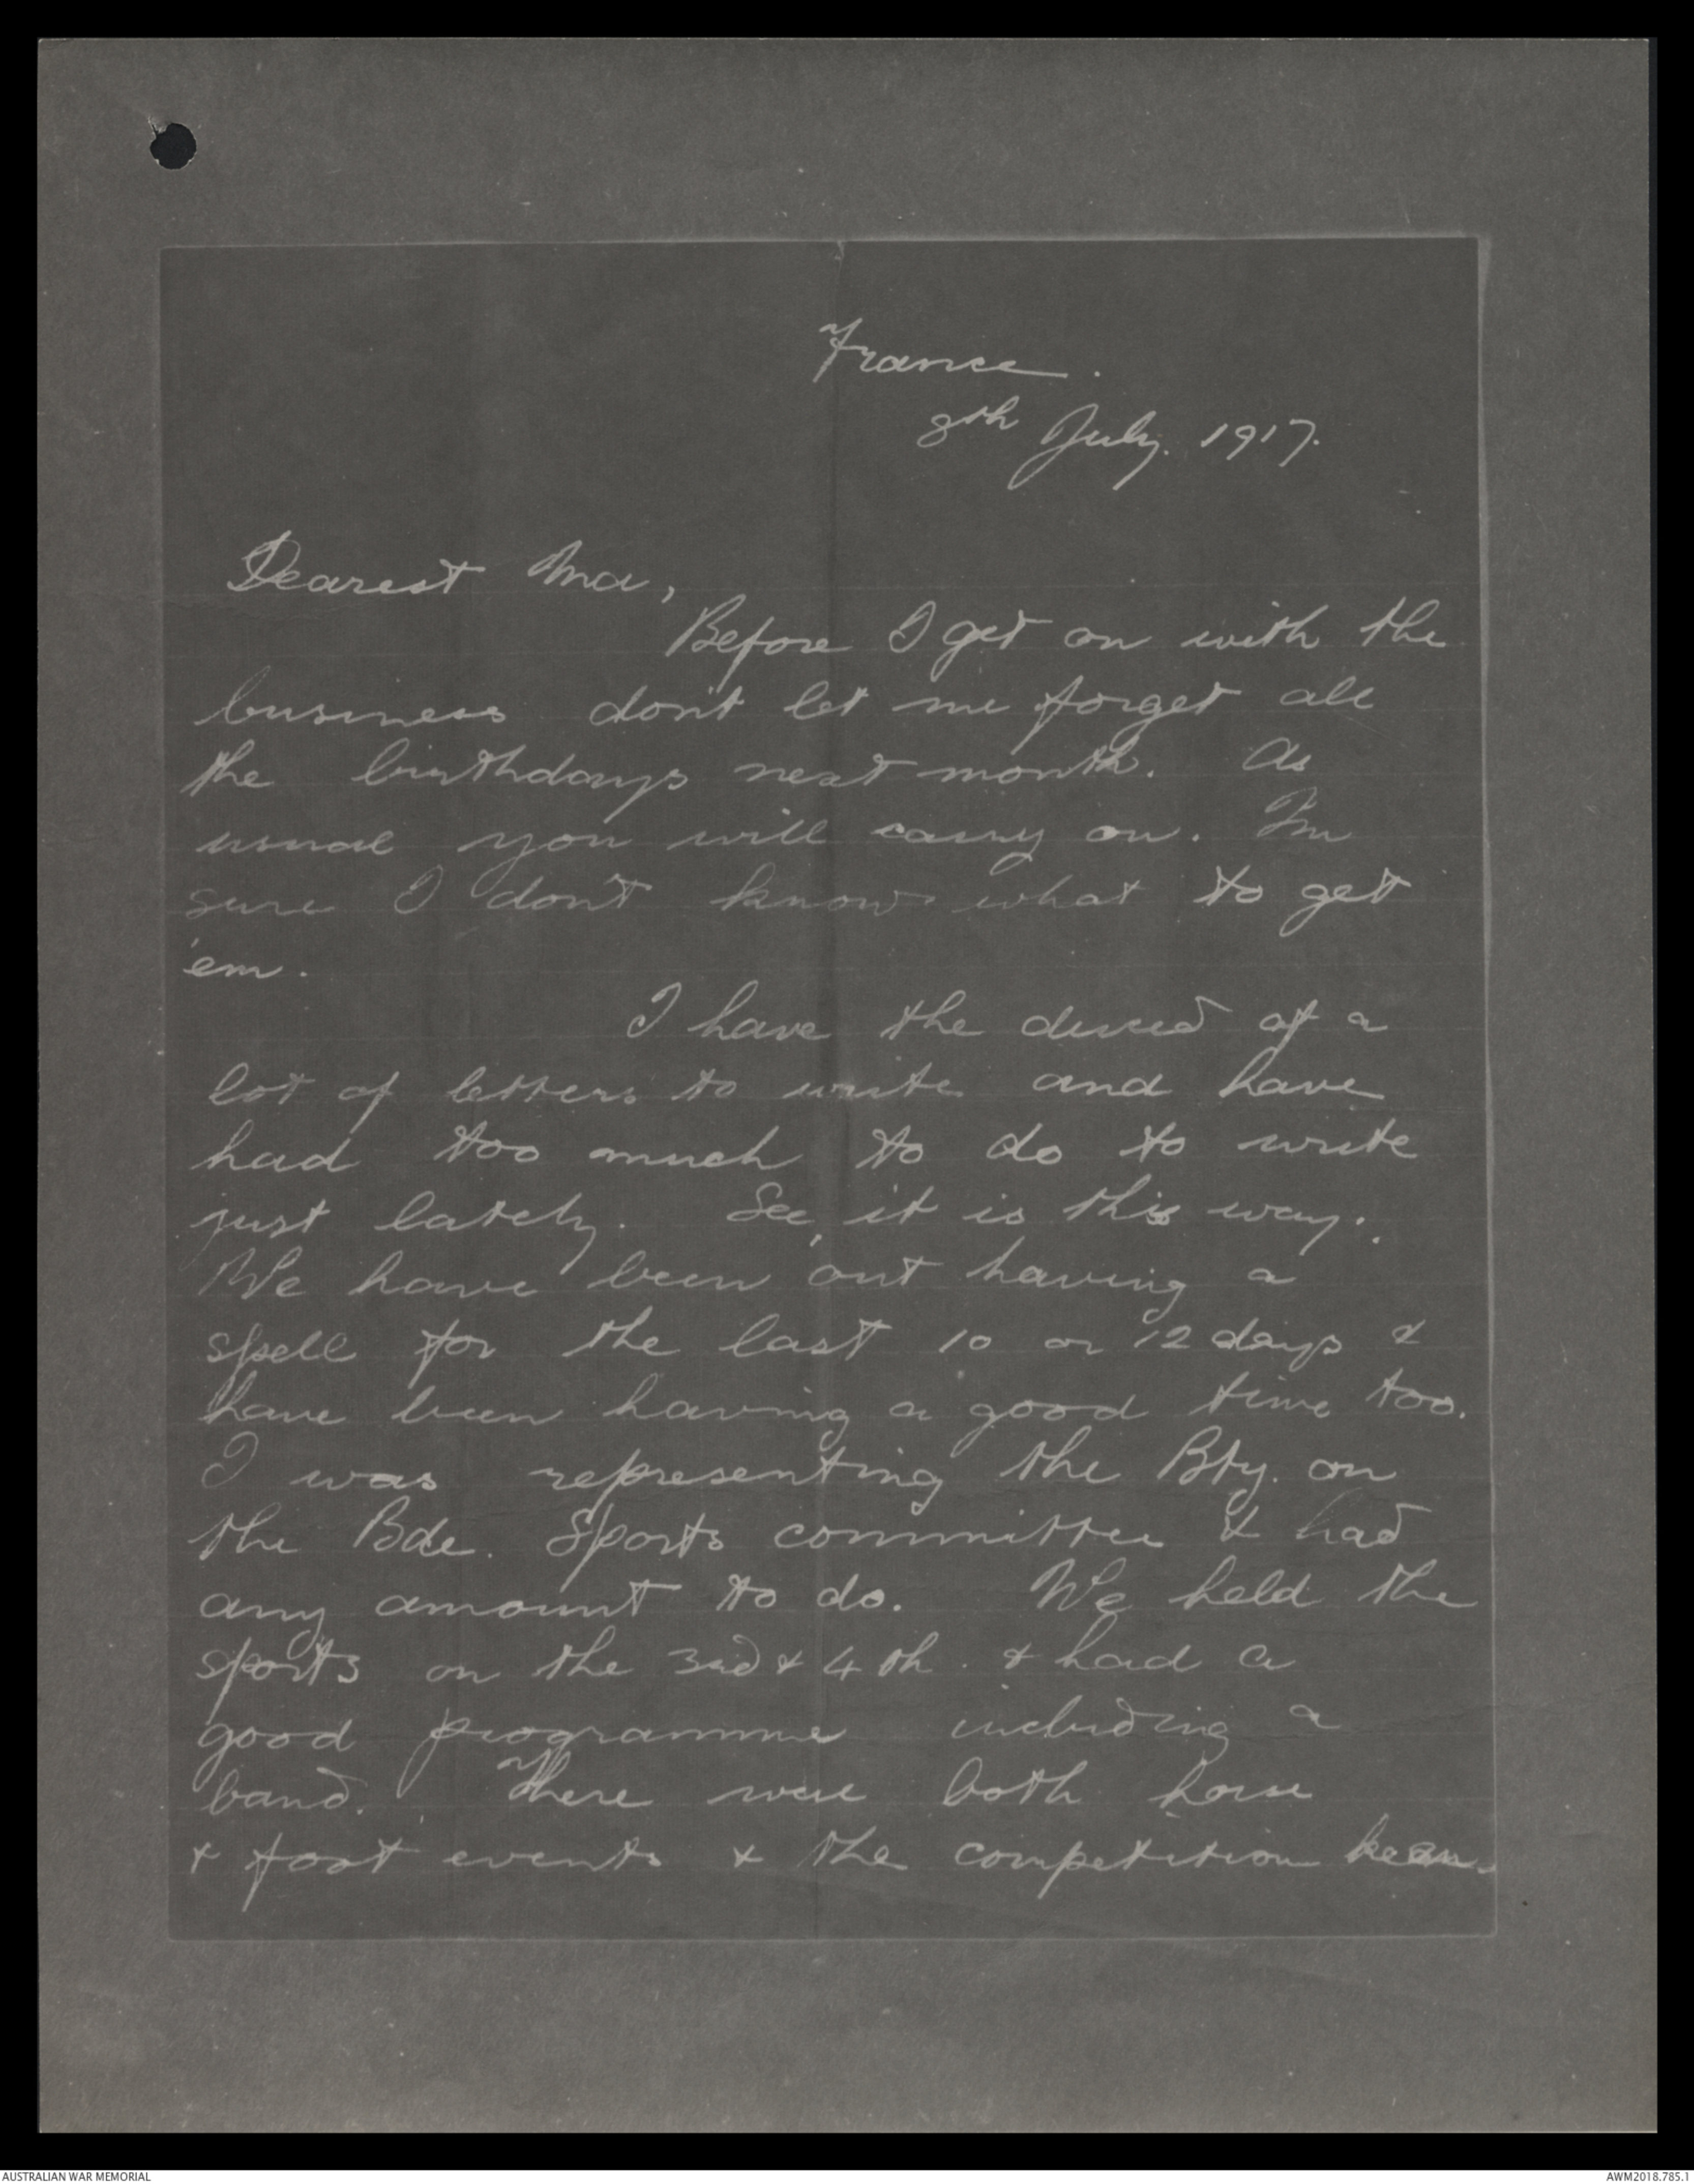 France.
8th July. 1917.
Dearest Ma,
Before I get on with the
business don't let me forget all
the birthdays next month. As
usual you will carry on. I'm
sure I don't know what to get
'em.
I have the deuced of a
lot of letters to write and have
had too much to do to write
just lately. See, it is this way.
We have been out having a
spell for the last 10 or 12 days &
have been having a good time too.
I was representing the Bty. on
the Bde. Sports committee & had
any amount to do. We held the
sports on the 3rd & 4th. & had a
good programme including a
band. There were both horse
& foot events & the competition keen.
AUSTRALIAN WAR MEMORIAL
AWM2018.785.1